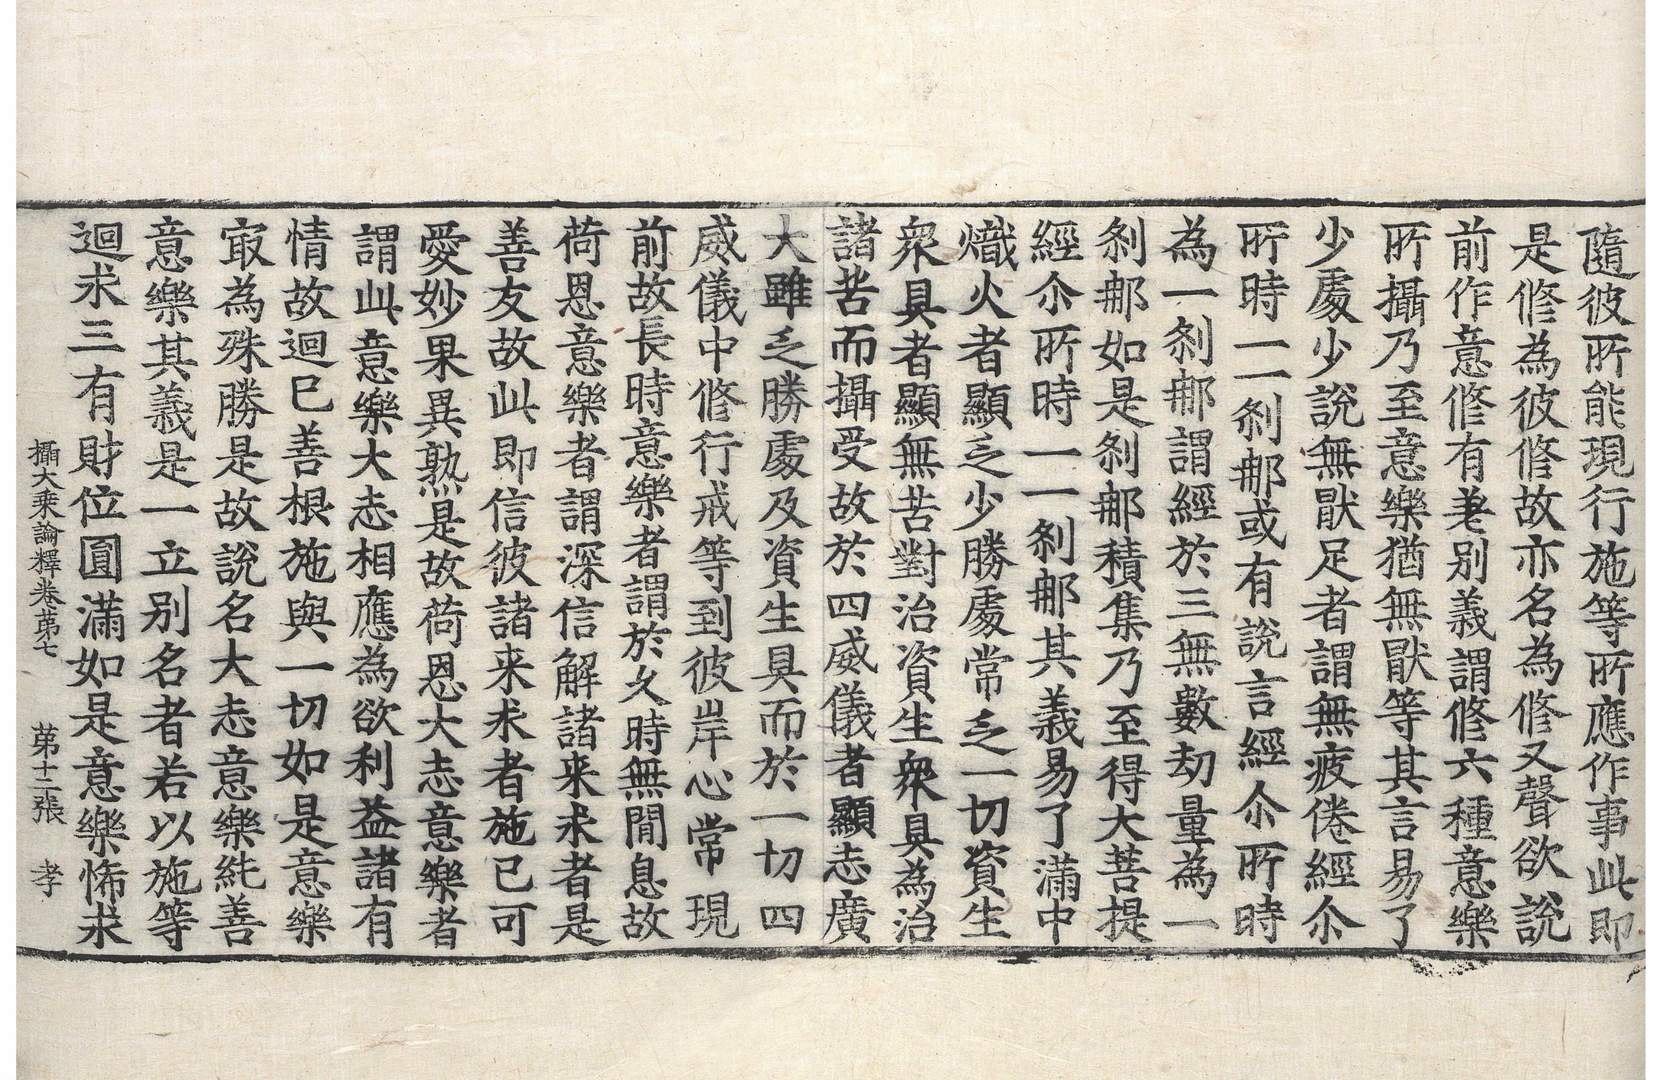 隨彼所能現行施等所應作事此即
是修為彼修故亦名為修又聲欲說
前作意修有差别義謂修六種意樂
所攝乃至意樂猶無猒等其言易了
少處少說無猒足者謂無疲倦經尒
所時一一剎那或有說言經尒所時
為一剎那謂經於三無數劫量為一
剎那如是剎那積集乃至得大菩提
經尒所時一一剎那其義易了滿中
熾火者顯乏少勝處常乏一切資生
衆具者顯無苦對治資生衆具為治
諸苦而攝受故於四威儀者顯志廣
大雖乏勝處及資生具而於一切四
威儀中修行戒等到彼岸心常現
前故長時意樂者謂於久時無間息故
荷恩意樂者謂深信解諸来求者是
善友故此即信彼諸来求者施已可
愛妙果異熟是故荷恩大志意樂者
謂此意樂大志相應為欲利益諸有
情故迴巳善根施與一切如是意樂
㝡為殊勝是故說名大志意樂純善
意樂其義是一立别名者若以施等
迴求三有財位圓滿如是意樂悕求
攝大乘論釋卷苐七　苐十二張　孝